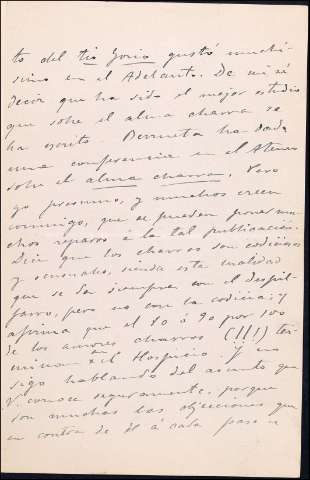 to del tío Gorio gustó muchi-
simo en el Adelanto. De mí sé
decir que ha sido el mejor estudio
que sobre el alma charra se
ha escrito. Berrueta ha dado
una conferencia en el Ateneo
sobre el alma charra. Pero
yo presumo, y muchos creen
conmigo, que se pueden poner mu-
chos reparos á la tal publicación.
Decir que los charros son codiciosos
y sensuales, siendo esta cualidad
que se da siempre con el despil-
farro, pero no con la codicia; y
afirma que el 80 ó 90 por 100
de los amores charros (!!!) ter-
minan en el Hospicio. Y no
sigo hablando del asunto que
V. conoce seguramente, porque
son muchas las objeciones que
en contra de él á cada paso